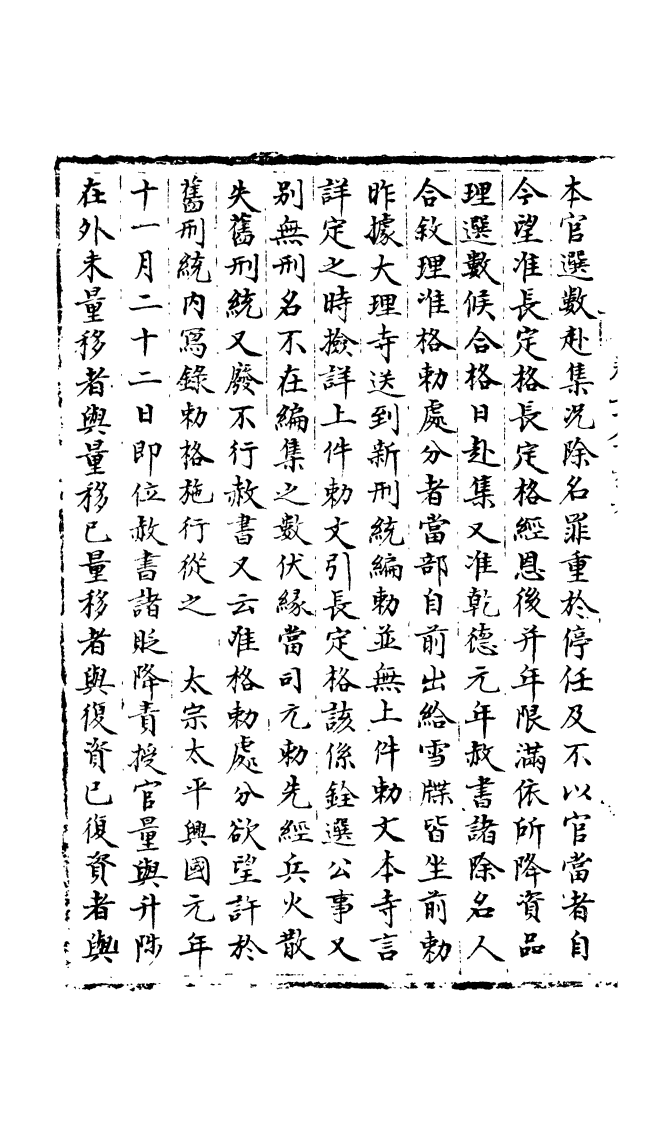 本官選數赴集況除名罪重於停任及不以官當者自
今望准長定格長定格經恩後并年限滿依所降資品
理選數候合格日赴集又准乾德元年赦書諸除名人
合敘理准格勅處分者當部自前出給雪牒皆坐前勅
昨據大理寺送到新刑統編勅並無上件勅文本寺言
詳定之時撿詳上件勅文引長定格該係銓選公事又
別無刑名不在編集之數伏緣當司元勅先經兵火散
失舊刑統又廢不行赦書又云准格勅處分欲望許於
舊刑統內寫錄勅格施行從之　太宗太平興國元年
十一月二十二日即位赦書諸貶降責授官量與升陟
在外未量移者與量移已量移者與復資已復資者與